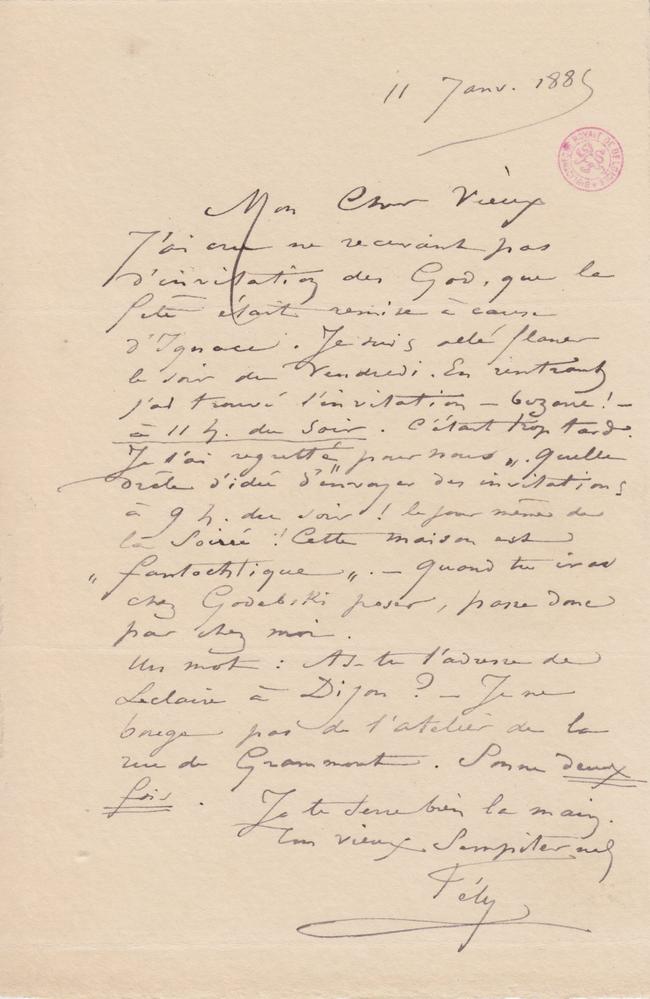 11 Janv. 1885
BIBLIOTHEQUE ROYALE DE BELGIQUE
Mon Cher Vieux
J'ai cru ne recevant pas
d'invitation des God, que la
fête était remise à cause
d'Ignace. Je suis allé flaner
le soir du Vendredi. En rentrant
j'ai trouvé l'invitation – bizarre! –
à 11 h. du soir. C'était trop tard.
Je l'ai regretté „pour nous„. Quelle
drôle d'idée d'envoyer des invitations
à 9 h. du soir! le jour même de
la Soirée! Cette maison est
„fantochtique„. – Quand tu iras
chez Godebski poser, passe donc
par chez moi.
Un mot : As-tu l'adresse de
Leclaire à Dijon? – Je ne
bouge pas de l'atelier de la
rue de Grammont. Sonne deux
fois.
Je te serre bien la main.
Ton vieux Sempiternel
Fély